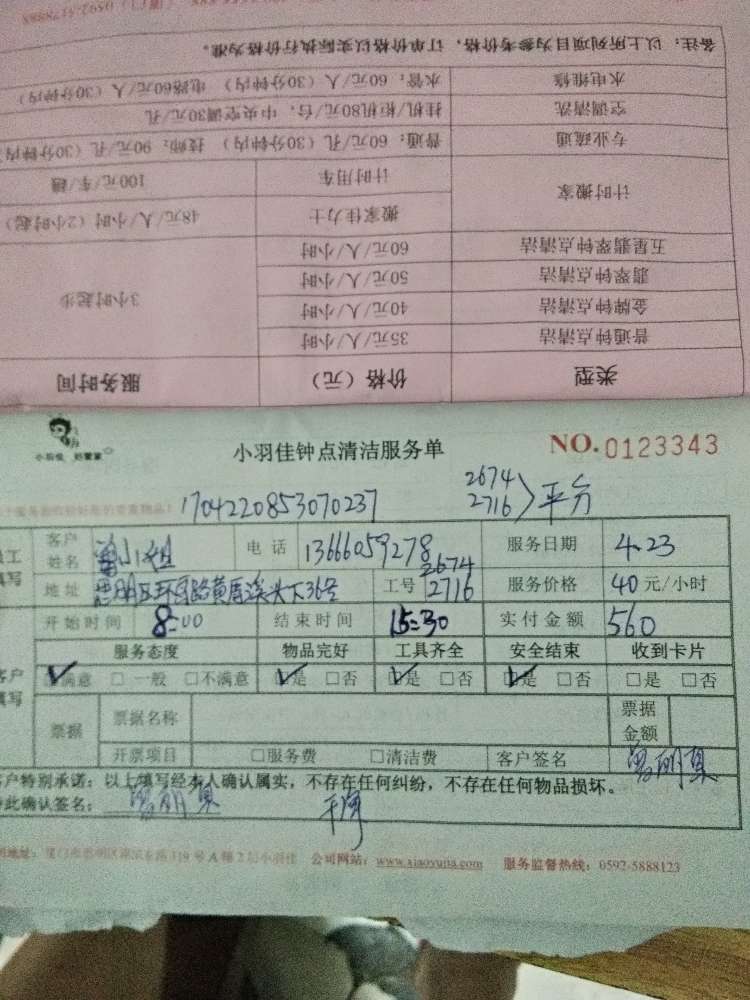 备注：以上所列项目为参考价格，订单价格以实际执行价格为准。
水电维修 水管：60元/人（30分钟内） 电路60元/人（30分钟内）
空调清洗 挂机/柜机80元/台，中央空调30元/孔
专业疏通 普通：60元/孔（30分钟内） 技师：90元/孔（30分钟内）
计时搬家 计时用车 100元/车/趟
搬家佳力士 48元/人/小时（2小时起）
五星翡翠钟点清洁 60元/人/小时
翡翠钟点清洁 50元/人/小时 3小时起步
金牌钟点清洁 40元/人/小时
普通钟点清洁 35元/人/小时
类型 价格（元） 服务时间
小羽佳 好管家
小羽佳钟点清洁服务单 NO.0123343
1704220853070237 2674 2716 平分
客户姓名 曾小姐 电话 13666059278 服务日期 4.23
地址 思明区环岛路黄厝溪头下36号 工号 2674 2716 服务价格 40元/小时
开始时间 8:00 结束时间 15:30 实付金额 560
服务态度 物品完好 工具齐全 安全结束 收到卡片
满意 □一般 □不满意 是 □否 是 □否 是 □否 □是 □否
票据 票据名称 票据金额
开票项目 □服务费 □清洁费 客户签名
客户特别承诺：以上填写经本人确认属实，不存在任何纠纷，不存在任何物品损坏。
特此确认签名：
公司网站：www.xiaoyujia.com 服务监督热线：0592-5888123